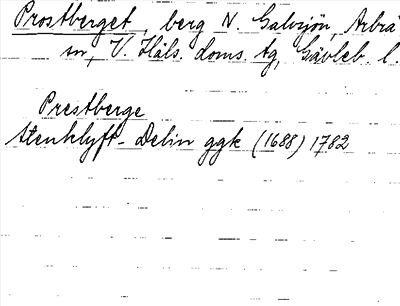 Prostberget, berg N. Galvsjön, Arbrå
sn, V. Häls. doms. tg, Gävleb. l.
Prestberge
Stenklyft - Delin ggk (1688) 1782